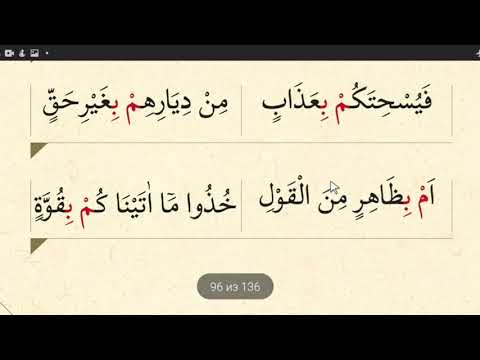 فَيُسْحِتَكُمْ بِعَذَابٍ مِنْ دِيَارِهِمْ بِغَيْرِ حَقٍّ
اَمْ بِظَاهِرٍ مِنَ الْقَوْلِ خُذُوا مَٓا اٰتَيْنَا كُمْ بِقُوَّةٍ
96 из 136